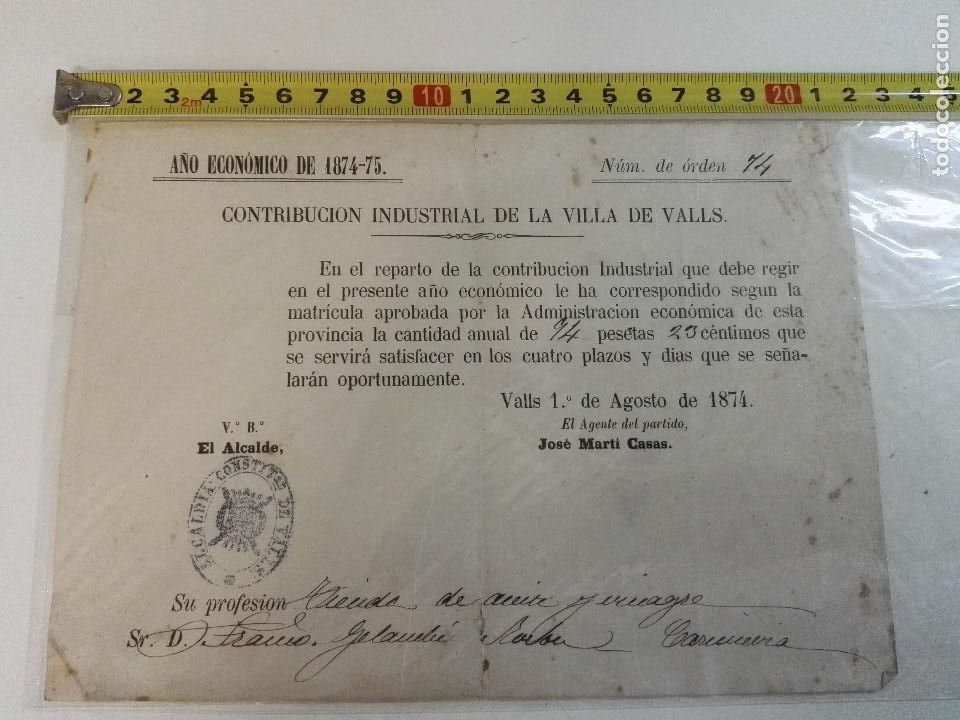 2 3 2m 4 5 6 7 8 9 10 1 2 3 4 5 6 7 8 9 20 1 2 3 4 5
AÑO ECONÓMICO DE 1874-75.
Núm. de órden 74
CONTRIBUCION INDUSTRIAL DE LA VILLA DE VALLS.
En el reparto de la contribucion Industrial que debe regir
en el presente año económico le ha correspondido segun la
matrícula aprobada por la Administracion económica de esta
provincia la cantidad anual de 74 pesetas 23 céntimos que
se servirá satisfacer en los cuatro plazos y dias que se seña-
larán oportunamente.
Valls 1.º de Agosto de 1874.
V.º B.º
El Alcalde,
El Agente del partido,
José Martí Casas.
ALCALDIA CONSTITAL DE VALLS
Su profesion Tienda de aceite y vinagre
Sr. D. Franco.
todocoleccion